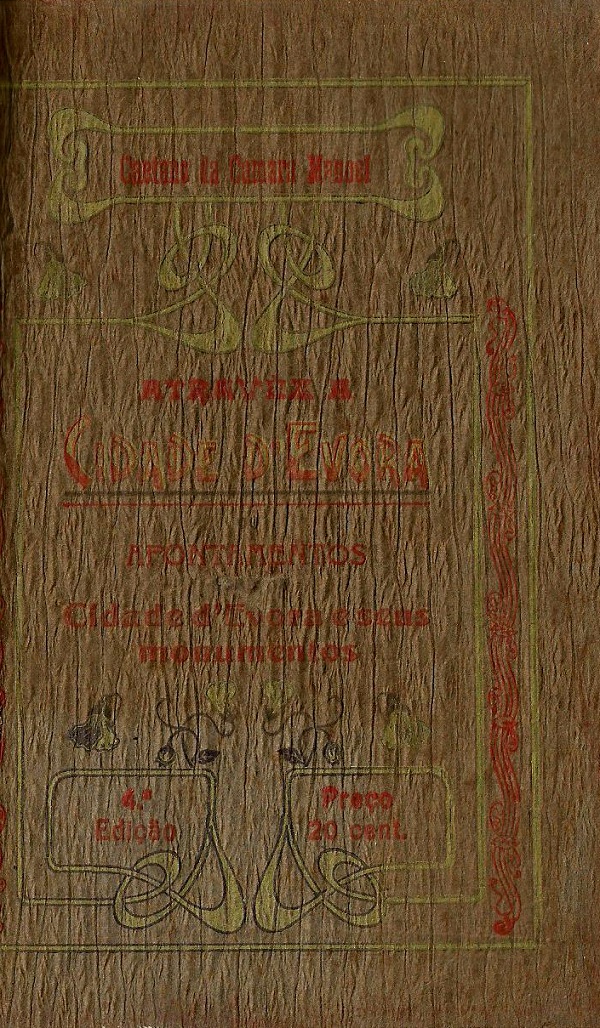 Caetano da Camara Manoel
ATRAVEZ A
CIDADE D'EVORA
APONTAMENTOS
Cidade d'Evora e seus
monumentos
4.ª
Edição
Preço
20 cent.